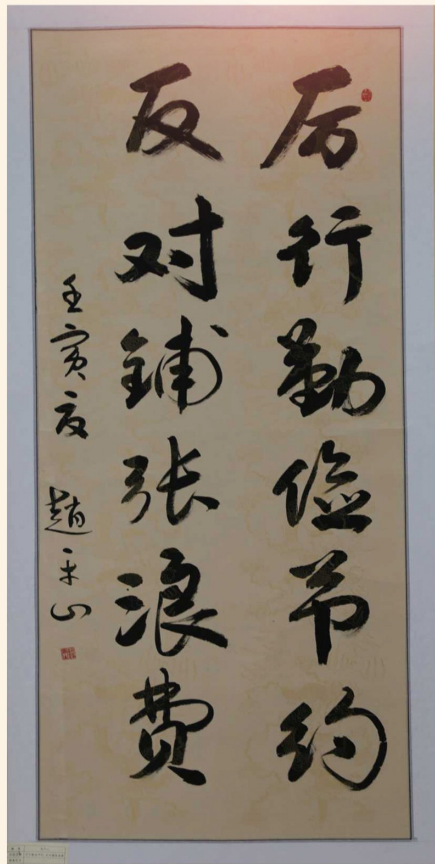 厉行勤俭节约
反对铺张浪费
壬寅夏 趙平山